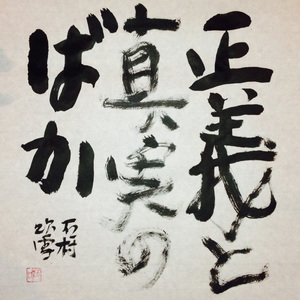 正義と
真実の
ばか
石村
吹雪